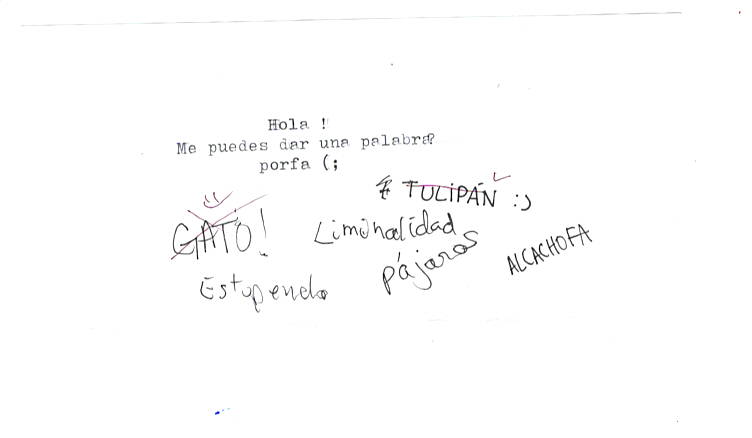 Hola !
Me puedes dar una palabra?
porfa (;
TULIPÁN :)
GATO!
Liminalidad
pájaros
ALCACHOFA
Estupendo